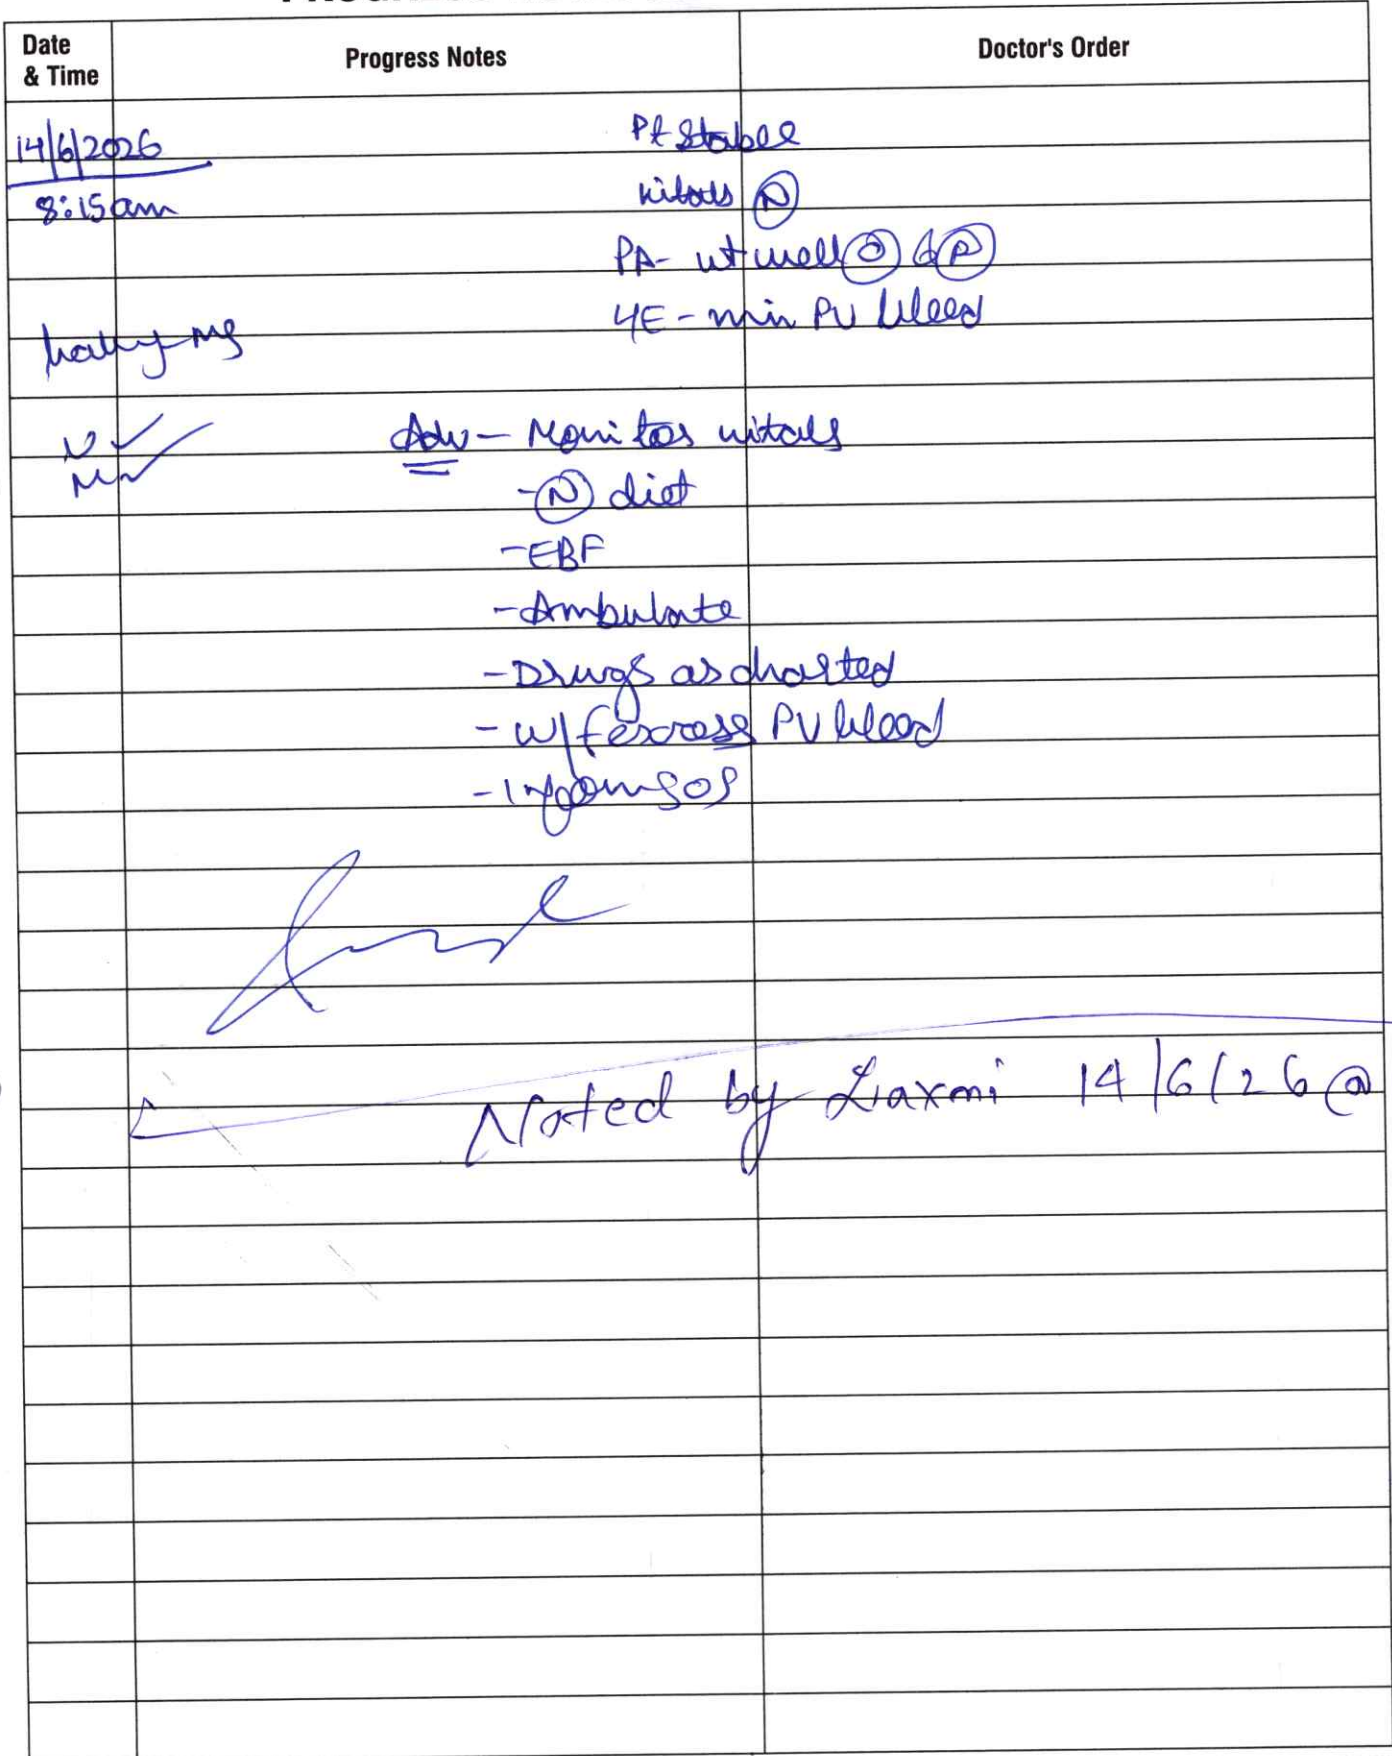 Date & Time
Progress Notes
Doctor's Order
14/6/2026
Pt Stable
8:15am
vitals Ⓝ
PA- ut well
L/E - min PV bleed
U ✓
M ✓
Adv - Monitor vitals
- Ⓝ diet
- EBF
- Ambulate
- Drugs as charted
- w/f excess PV bleed
- Inform SOS
Noted by Laxmi 14/6/26 @